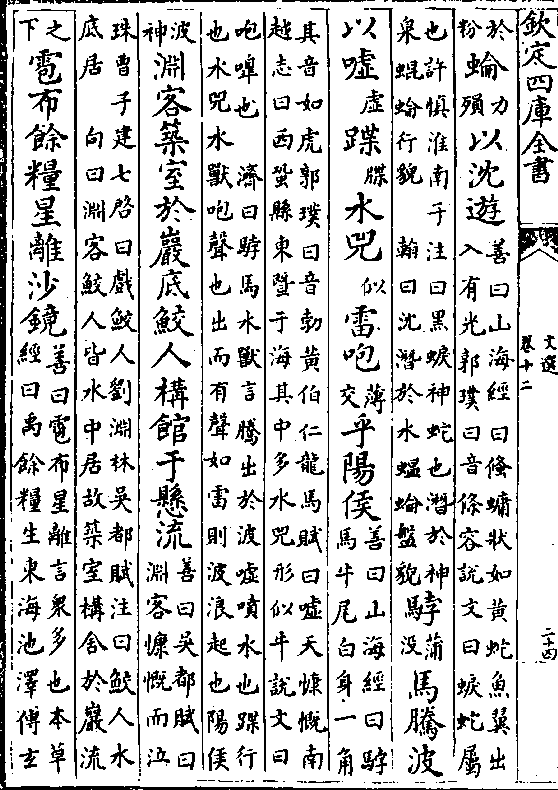 欽定四庫全書
文選
卷十二
二十四
於粉蜦力殞以沈遊善曰山海經曰鯈䗤狀如黃蛇魚翼出
入有光郭璞曰音條容說文曰蜧蛇屬
也許慎淮南子注曰黑蜧神蛇也潛於神
泉蜫蜦行貌 翰曰沈潛於水蝹蜦盤貌䮀蒲没馬騰波
以噓虛蹀牒水兕似雷咆薄交乎陽侯善曰山海經曰䮀
馬牛尾白身一角
其音如虎郭璞曰音勃黃伯仁龍馬賦曰噓天慷慨南
越志曰西蛩縣東暨于海其中多水兕形似牛說文曰
咆嘷也 濟曰䮀馬水獸言騰出於波噓噴水也蹀行
也水兕水獸咆聲也出而有聲如雷則波浪起也陽侯
波神淵客築室於巖底鮫人構館于懸流善曰吳都賦曰
淵客慷慨而泣
珠曹子建七啓曰戲鮫人劉淵林吳都賦注曰鮫人水
底居 向曰淵客鮫人皆水中居故築室構舍於巖流
之下雹布餘糧星離沙鏡善曰雹布星離言衆多也本草
經曰禹餘糧生東海池澤傅玄